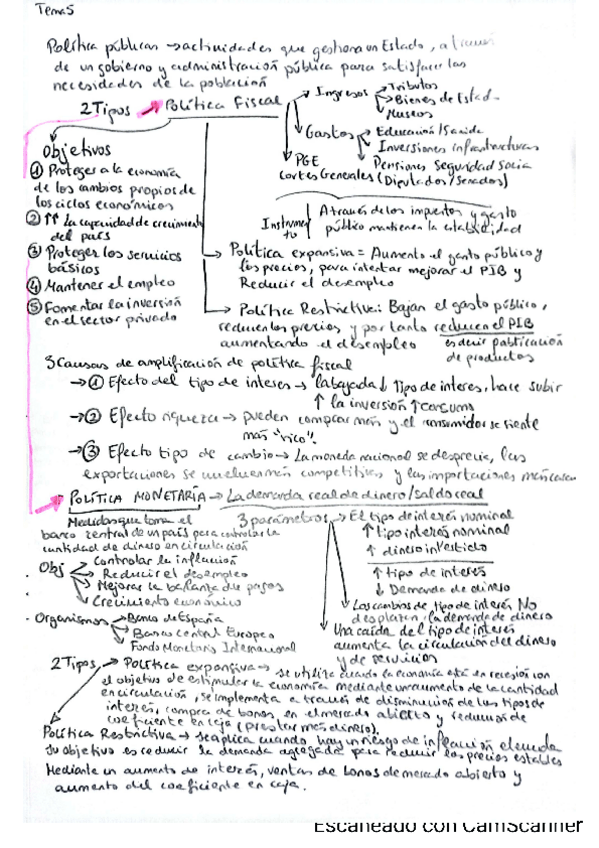 Tema 5
Política públicas → actividades que gestiona un Estado, a través
de un gobierno y administración pública para satisfacer las
necesidades de la población
2 Tipos → Política Fiscal
→ Ingresos → Tributos
→ Bienes de Estad.
→ Museos
→ Gastos → Educación/Sanida
Inversiones infraestructuras
Pensiones Seguridad Socia
→ PGE
Cortes Generales (Diputados/Senados)
Objetivos
① Proteger a la economía
de los cambios propios de
los ciclos económicos
② ↑↑ La capacidad de crecimiento
del país
③ Proteger los servicios
básicos
④ Mantener el empleo
⑤ Fomentar la inversión
en el sector privado
Instrumento
A través de los impuestos y gasto
público mantienen la estabilidad
→ Política expansiva = Aumento el gasto público y
los precios, para intentar mejorar el PIB y
Reducir el desempleo
→ Política Restrictiva: Bajan el gasto público,
reducen los precios y por tanto reducen el PIB
aumentando el desempleo
es decir
de productos
3 Causas de amplificación de política fiscal
→ ① Efecto del tipo de interes → la bajada ↓ tipo de interes, hace subir
↑ la inversión ↑ consumo
→ ② Efecto riqueza → pueden comprar más y el consumidor se siente
más "rico".
→ ③ Efecto tipo de cambio → La moneda nacional se deprecia, las
exportaciones se vuelven más competitivas y las importaciones más caras
→ POLÍTICA MONETARIA → La demanda real de dinero/saldo real
Medidas que toma el
banco central de un país para controlar la
cantidad de dinero en circulación
3 parámetros → El tipo de interés nominal
↑ tipo interés nominal
↑ dinero invertido
↑ tipo de interés
↓ Demanda de dinero
↓ Los cambios de tipo de interés NO
desplazan la demanda de dinero
Una caída del tipo de interés
aumenta la circulación del dinero
y de servicios
Obj → Controlar la inflación
→ Reducir el desempleo
→ Mejorar la balanza de pagos
→ Crecimiento económico
Organismos → Banco de España
→ Banco Central Europeo
Fondo Monetario Internacional
2 Tipos → Política expansiva → se utiliza cuando la economía está en recesión con
el objetivo de estimular la economía mediante un aumento de la cantidad
en circulación, se implementa a través de disminución de los tipos de
interés, compra de bonos, en el mercado abierto y reducción de
coeficiente en caja (prestar más dinero).
Política Restrictiva → se aplica cuando hay un riesgo de inflación elevada
Su objetivo es reducir la demanda agregada para reducir los precios estables
Mediante un aumento de interés, ventas de bonos de mercado abierto y
aumento del coeficiente en caja.
Escaneado con CamScanner